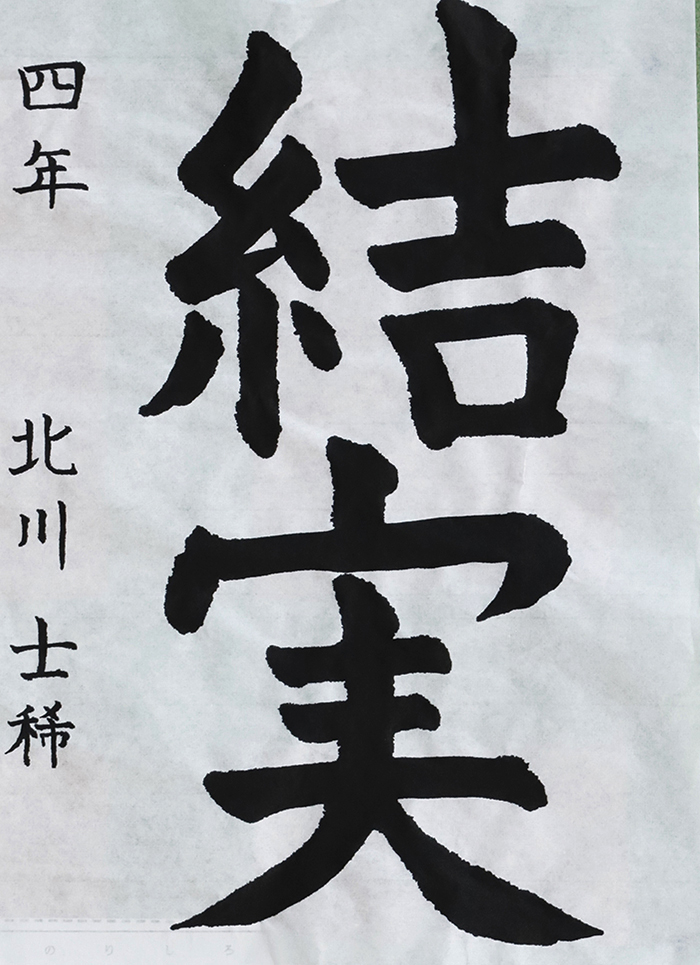 結実
四年 北川 士稀
のりしろ